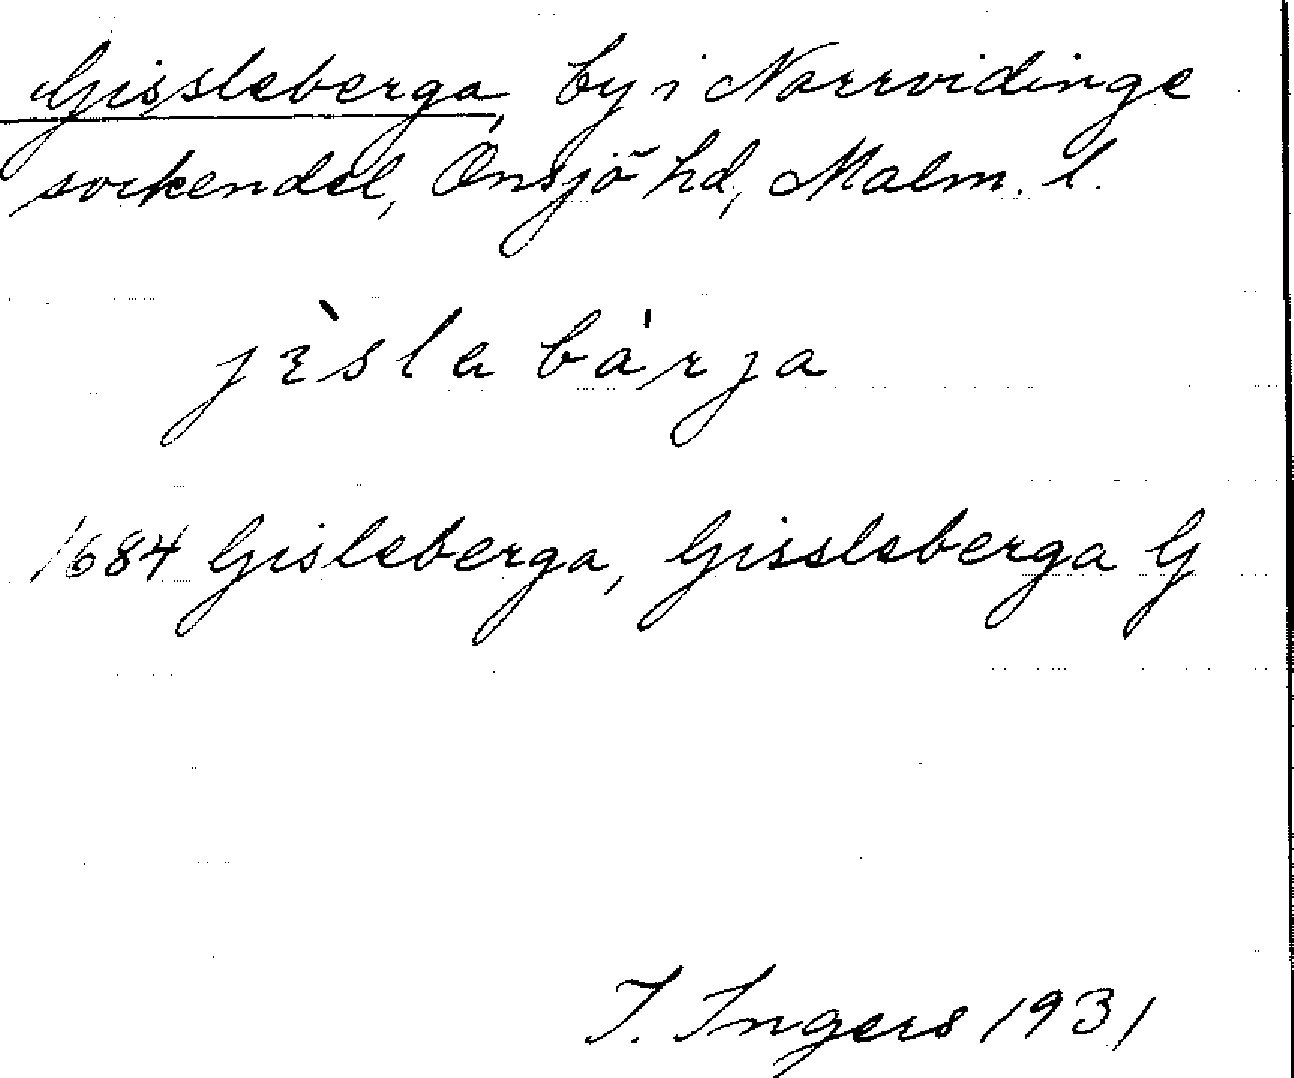 Gissleberga, by i Norrvidinge
sockendel, Onsjö hd, Malm. l.
jìsla bárja
1684 Gisleberga, Gissleberga G
I. Ingers 1931